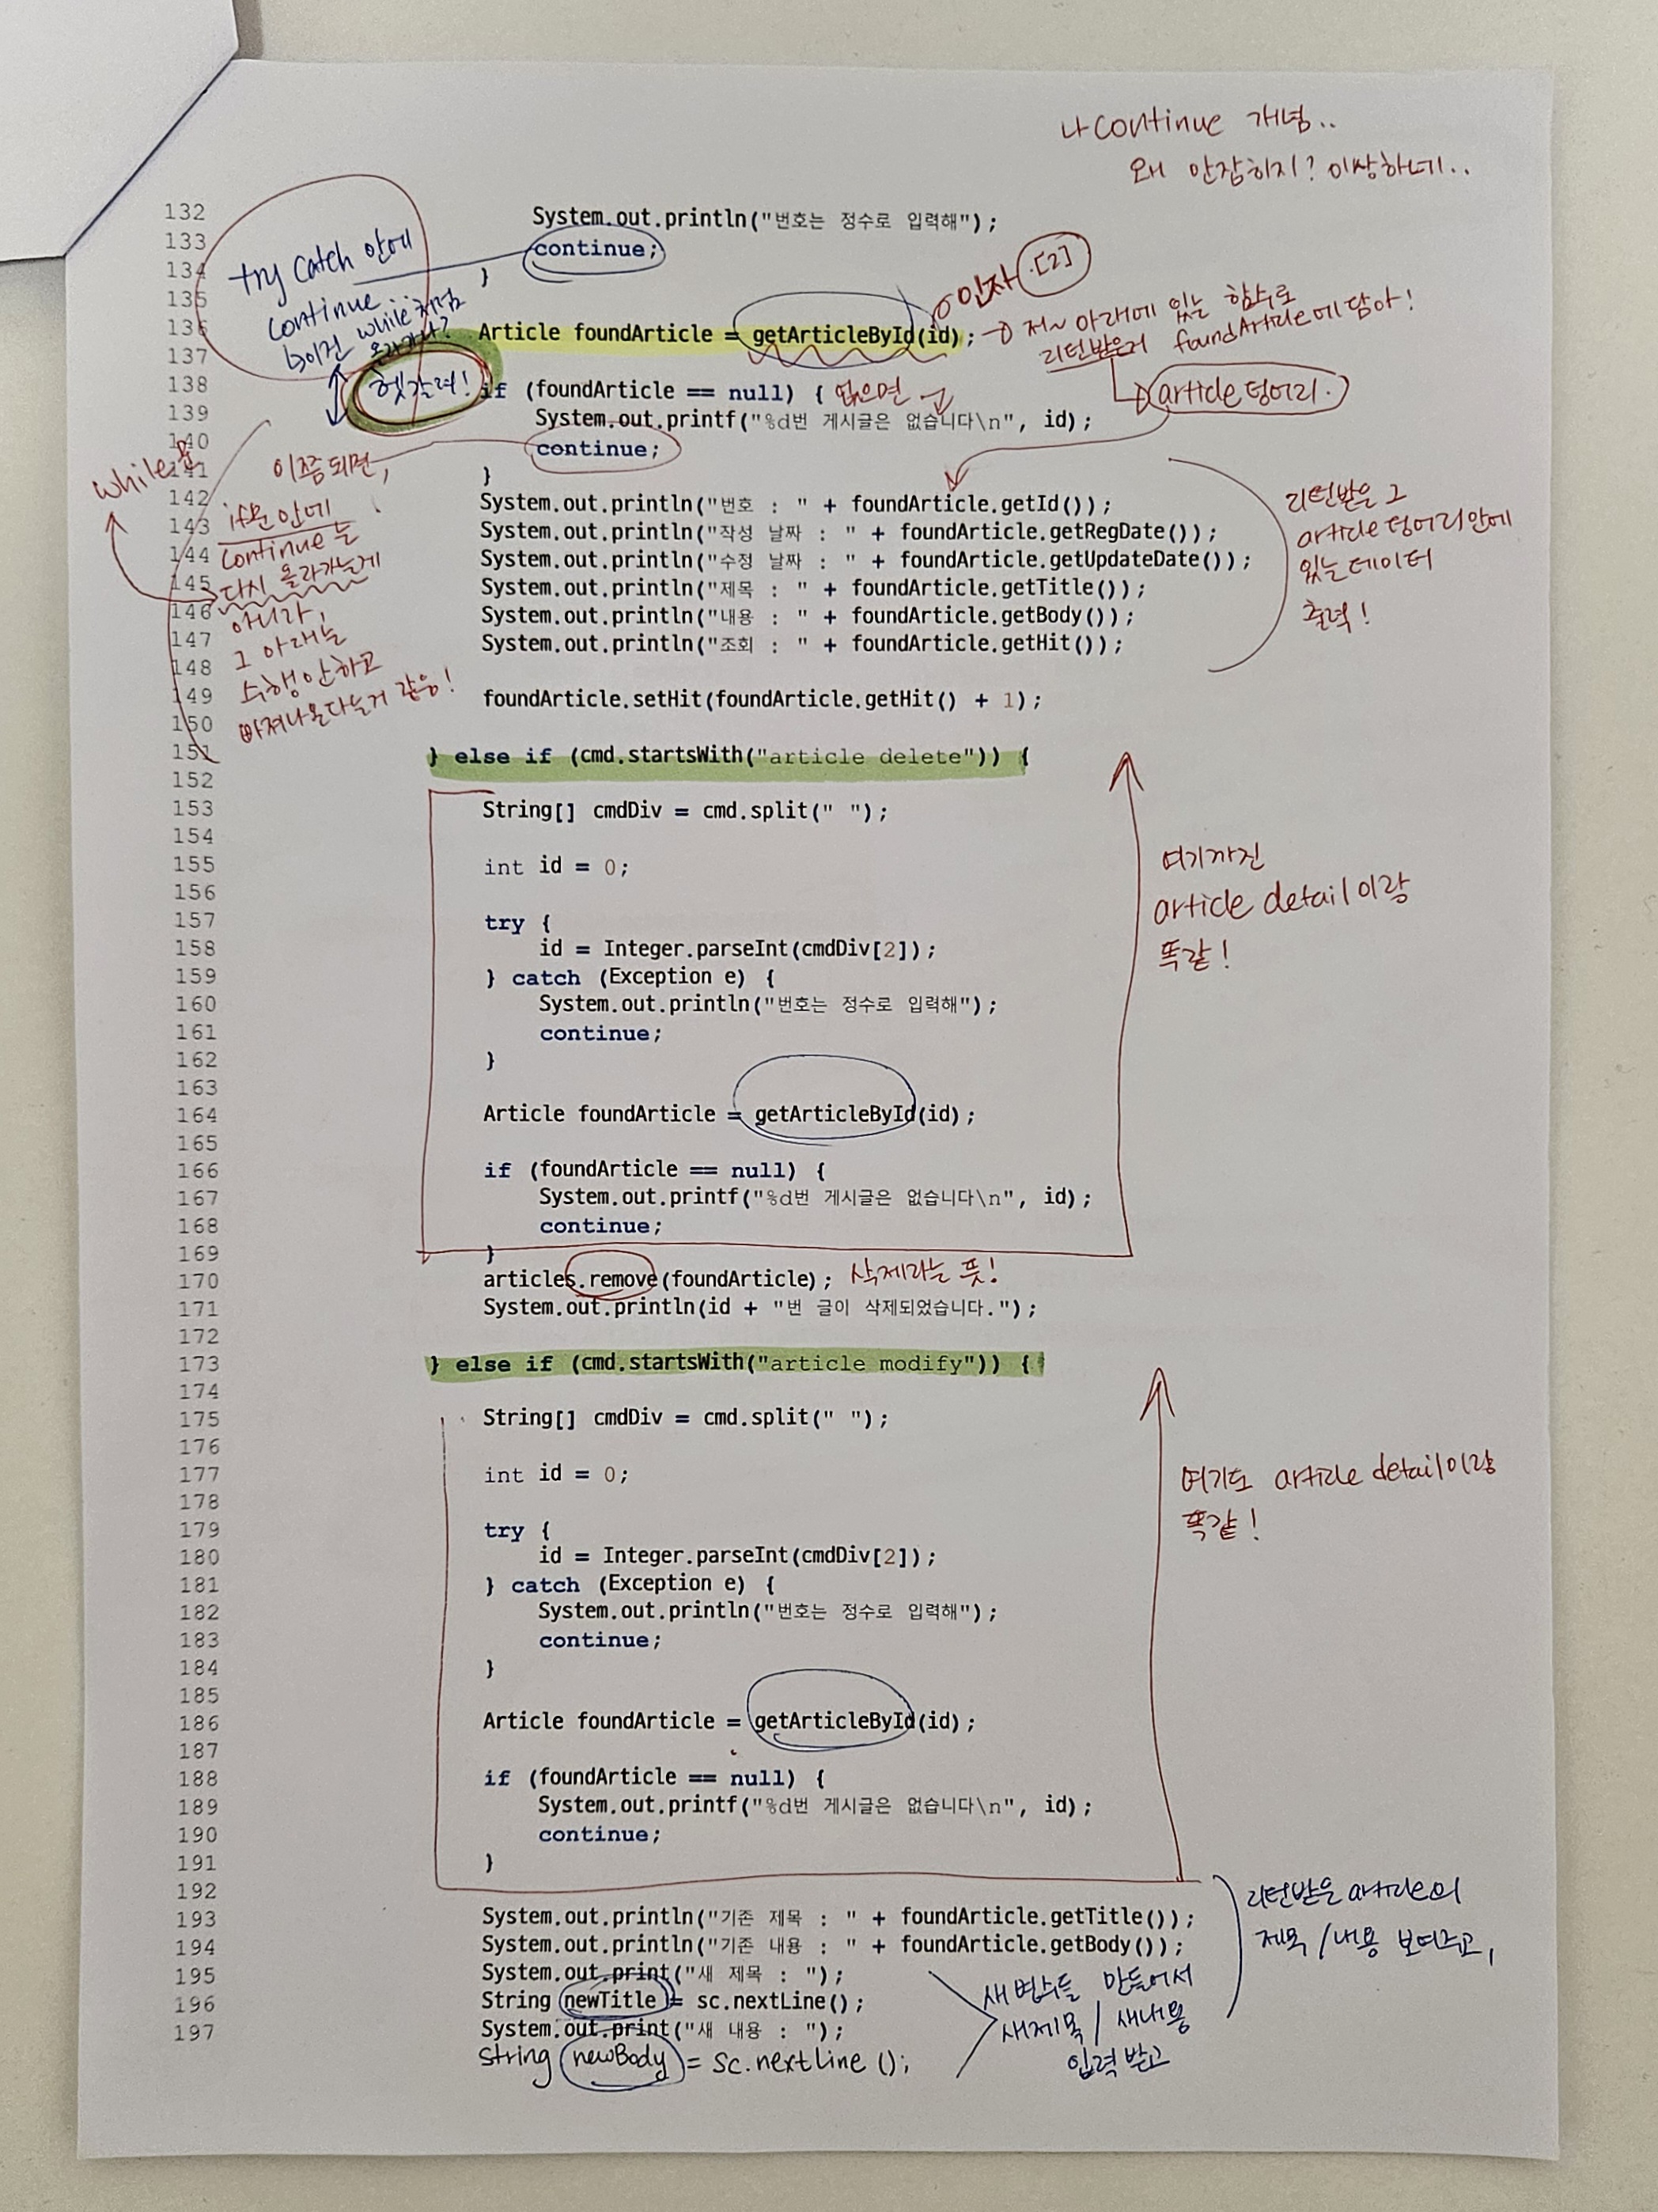 나 continue 개념..
왜 안잡히지? 이상하네..
132 System.out.println("번호는 정수로 입력해");
133 continue;
134 }
135
try catch 안에
continue
while 시점
올라가나?
헷갈려!
인자 .[2]
136 Article foundArticle = getArticleById(id); → 저~ 아래에 있는 함수로
리턴받은거 foundArticle에 담아!
article 덩어리.
137
138 if (foundArticle == null) { 없으면
139 System.out.printf("%d번 게시글은 없습니다\n", id);
140 continue;
141 }
142 System.out.println("번호 : " + foundArticle.getId());
143 System.out.println("작성 날짜 : " + foundArticle.getRegDate());
144 System.out.println("수정 날짜 : " + foundArticle.getUpdateDate());
145 System.out.println("제목 : " + foundArticle.getTitle());
146 System.out.println("내용 : " + foundArticle.getBody());
147 System.out.println("조회 : " + foundArticle.getHit());
148
149 foundArticle.setHit(foundArticle.getHit() + 1);
150
while
이쯤되면,
if문 안에
continue는
다시 올라가는게
아니라,
그 아래는
수행 안하고
빠져나온다는거 같음!
리턴받은 그
article 덩어리 안에
있는 데이터
출력!
151 } else if (cmd.startsWith("article delete")) {
152
153 String[] cmdDiv = cmd.split(" ");
154
155 int id = 0;
156
157 try {
158 id = Integer.parseInt(cmdDiv[2]);
159 } catch (Exception e) {
160 System.out.println("번호는 정수로 입력해");
161 continue;
162 }
163
164 Article foundArticle = getArticleById(id);
165
166 if (foundArticle == null) {
167 System.out.printf("%d번 게시글은 없습니다\n", id);
168 continue;
169 }
여기까진
article detail이랑
똑같!
170 articles.remove(foundArticle); 삭제라는 뜻!
171 System.out.println(id + "번 글이 삭제되었습니다.");
172
173 } else if (cmd.startsWith("article modify")) {
174
175 String[] cmdDiv = cmd.split(" ");
176
177 int id = 0;
178
179 try {
180 id = Integer.parseInt(cmdDiv[2]);
181 } catch (Exception e) {
182 System.out.println("번호는 정수로 입력해");
183 continue;
184 }
185
186 Article foundArticle = getArticleById(id);
187
188 if (foundArticle == null) {
189 System.out.printf("%d번 게시글은 없습니다\n", id);
190 continue;
191 }
192
여기도 article detail이랑
똑같!
193 System.out.println("기존 제목 : " + foundArticle.getTitle());
194 System.out.println("기존 내용 : " + foundArticle.getBody());
195 System.out.print("새 제목 : ");
196 String newTitle = sc.nextLine();
197 System.out.print("새 내용 : ");
String newBody = sc.nextLine();
리턴받은 article의
제목/내용 보여주고,
새 변수들 만들어서
새제목 / 새내용
입력 받고